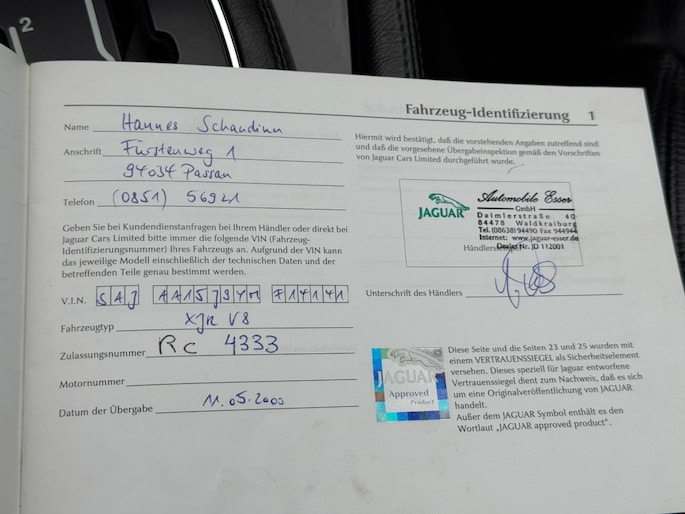 2
Fahrzeug-Identifizierung 1
Name Hannes Schaudinn
Anschrift Fürstenweg 1
94034 Passau
Telefon (0851) 56921
Geben Sie bei Kundendienstanfragen bei Ihrem Händler oder direkt bei
Jaguar Cars Limited bitte immer die folgende VIN (Fahrzeug-
Identifizierungsnummer) Ihres Fahrzeugs an. Aufgrund der VIN kann
das jeweilige Modell einschließlich der technischen Daten und der
betreffenden Teile genau bestimmt werden.
V.I.N. SAJ
Fahrzeugtyp XJR V8
Zulassungsnummer RC 4333
Motornummer
Datum der Übergabe 11.05.2000
Hiermit wird bestätigt, daß die vorstehenden Angaben zutreffend sind
und daß die vorgesehene Übergabeinspektion gemäß den Vorschriften
von Jaguar Cars Limited durchgeführt wurde.
JAGUAR
Automobile Esser
GmbH
Daimlerstraße 40
84478 Waldkraiburg
Tel. (08638) 94490 Fax 944944
Internet: www.jaguar-esser.de
Dealer Nr. JD 112001
Unterschrift des Händlers
JAGUAR
Approved
Product
Diese Seite und die Seiten 23 und 25 wurden mit
einem VERTRAUENSSIEGEL als Sicherheitselement
versehen. Dieses speziell für Jaguar entworfene
Vertrauenssiegel dient zum Nachweis, daß es sich
um eine Originalveröffentlichung von JAGUAR
handelt.
Außer dem JAGUAR Symbol enthält es den
Wortlaut „JAGUAR approved product".